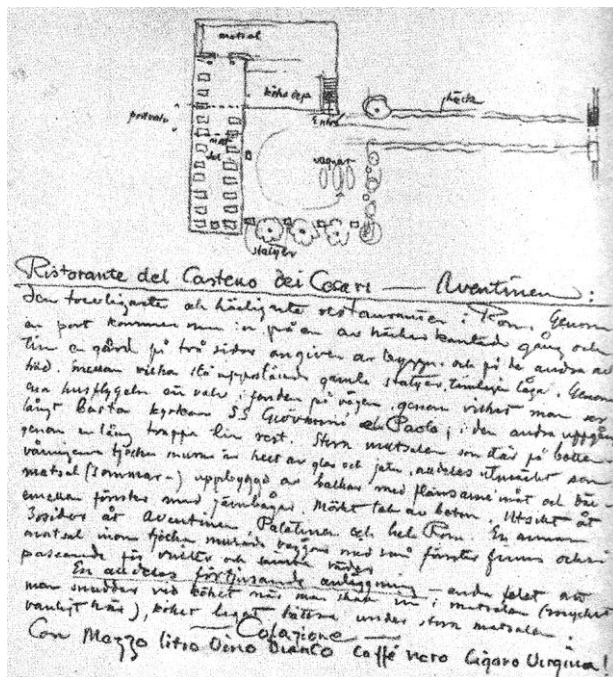 matsal
häcka
Entré
vagnar
mat
sal
statyer
Ristorante del Castello dei Cesari — Aventinen :
den trevligaste och härligaste restaurangen i Rom. Genom
en port kommer man in på en av häckar kantade gång och
till en gård på två sidor angiven av byggn. och på de andra av
träd. mellan vilka stå uppstående gamla statyer, temligen låga. Genom
ena husflygeln en valv i fonden på vägen, genom vilket man ser
långt bort kyrkan SS Giovanni e Paolo; i den andra uppgår
genom en lång trappa till rest. Stora matsalen som står på botten
våningens tjocka murar är helt av glas och järn, alldeles utmärkt som
matsal (sommar-) uppbyggd av balkar med
emellan fönster med järnbågar. Mörkt tak av betong. Utsikt åt
3 sidor åt Aventinen Palatinen och hela Rom. En annan
matsal inom tjocka murade väggar med små fönster finns också
passande för vinter och
En alldeles förtjusande anläggning — enda felet att
man snuddar vid köket när man skall in i matsalen (mycket
vanligt här), köket legat bättre under stora matsalen :
— Colazione —
Con Mezzo litro Vino Bianco Caffé nero Cigaro Virginia !